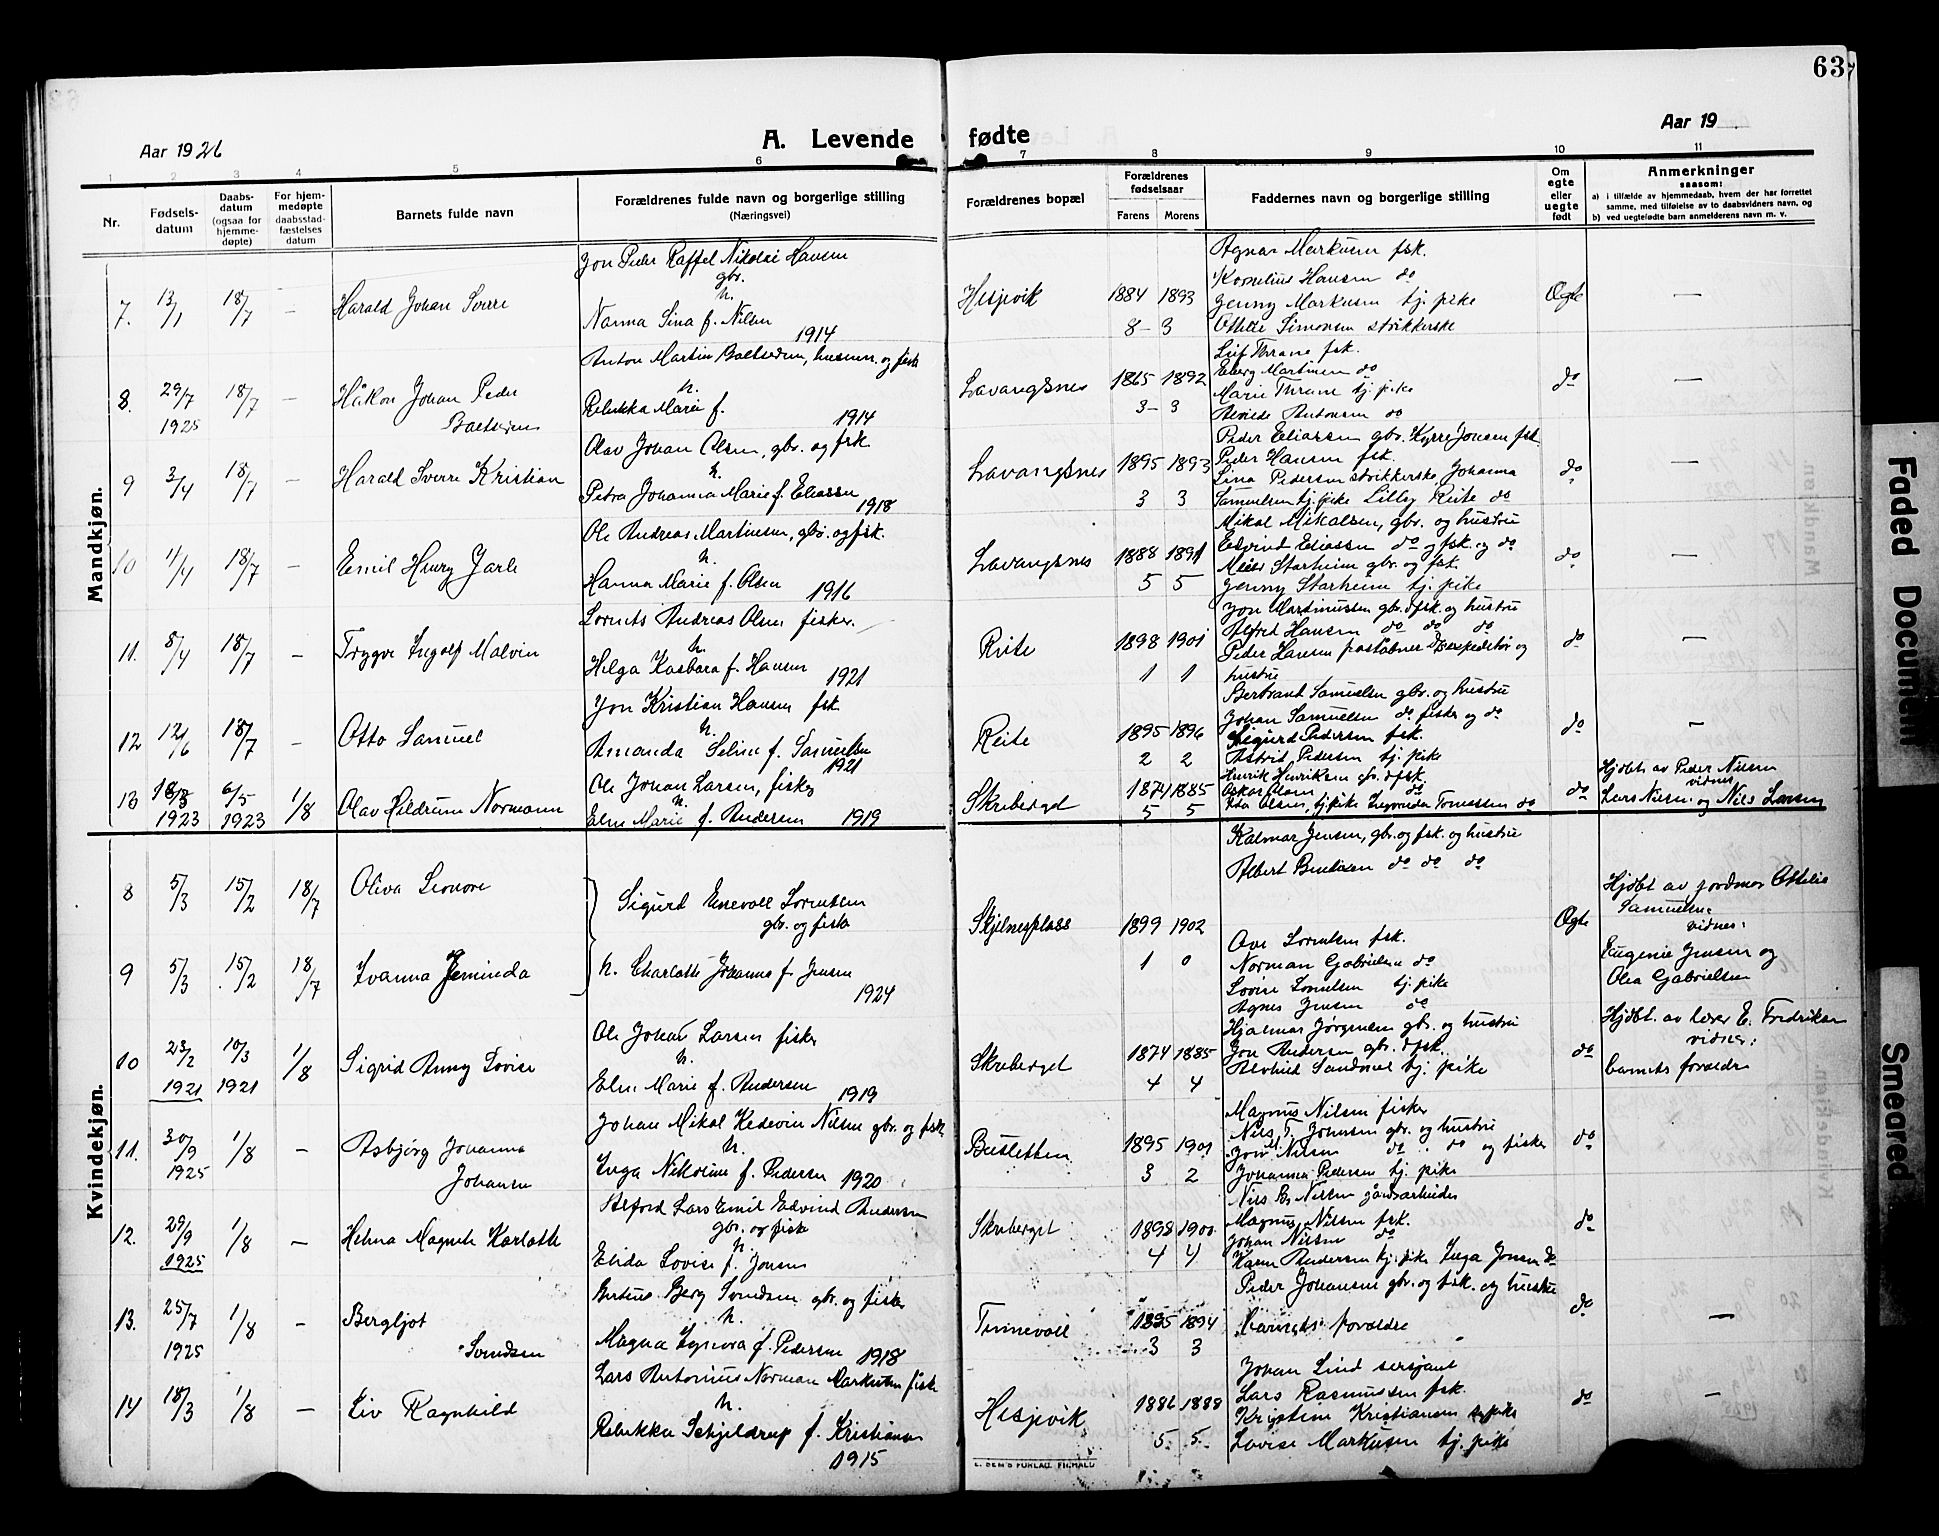 63
Aar 1926
A. Levende fødte
Aar 19
1 2 3 4 5 6 7 8 9 10 11
Nr.
Fødsels-
datum
Daabs-
datum
(ogsaa for
hjemme-
døpte)
For hjem-
medøpte
daabsstad-
fæstelses
datum
Barnets fulde navn
Forældrenes fulde navn og borgerlige stilling
(Næringsvei)
Forældrenes bopæl
Forældrenes
fødselsaar
Farens Morens
Faddernes navn og borgerlige stilling
Om
egte
eller
uegte
født
Anmerkninger
saasom:
a) i tilfælde av hjemmedaab, hvem der har forrettet
samme, med tilføielse av to daabsvidners navn, og
b) ved uegtefødte barn anmelderens navn m. v.
Mandkjøn.
7. 13/1 18/7 — Harald Johan Sverre
Jon Peder Raffel Nikolai Hansen
gbr.
h.
Nanna Sina f. Nilsen
1914
Hesjevik 1884 1893
8 – 3
Agnar Markusen fsk.
Kornelius Hansen do
Jenny Markusen tj. pike
Ottilie Simonsen strikkerske
Ægte —
8. 29/7 1925 18/7 — Håkon Johan Peder
Baltsersen
Anton Martin Baltsersen, husmn. og fisk
h.
Rebekka Marie f.
1914
Lavangsnes 1865 1892
3 – 3
Leif Thrane fsk.
Martinsen do
Marie Thrane tj. pike
Antonsen do
do —
9 3/4 18/7 — Harald Sverre Kristian
Olav Johan Olsen, gbr. og fsk
h.
Petra Johanna Marie f. Eliassen
1918
Lavangsnes 1895 1893
3 3
Peder Eliassen gbr. Kyrre Jonsen fsk
Peder Hansen fsk.
Lina Pedersen strikkerske, Johanna
Samuelsen tj. pike Lilly Reite do
do —
10 4/4 18/7 — Emil Henry Jarle
Ole Andreas Martinsen, gbr. og fsk.
h.
Hanna Marie f. Olsen
1916
Lavangsnes 1888 1891
5 5
Mikal Mikalsen, gbr. og hustru
Edvind Eliassen do og fsk. og do
Meier Starheim gbr. og fsk.
Jenny Starheim tj. pike
do —
11. 8/4 18/7 — Trygve Ingolf Malvin
Lorents Andreas Olsen fisker.
h.
Helga Kasbara f. Hansen
1921
Reite 1898 1901
1 1
Jon Martinussen gbr. &fsk. og hustru
Alfred Hansen do do do
Peder Hansen postaabner & expeditør og
hustru
do —
12 12/6 18/7 — Otto Samuel
Jon Kristian Hansen fsk
h.
Amanda Seline f. Samuelsen
1921
Reite 1895 1896
2 2
Bertrant Samuelsen gbr. og hustru
Johan Samuelsen do fisker og do
Sigurd Pedersen fsk.
Astrid Pedersen tj. pike
do —
13 18/3 1923 6/5 1923 1/8 Olav Hildrum Normann
Ole Johan Larsen, fisker
h
Elen Marie f. Andersen 1919
Skreberget 1874 1885
5 5
Henrik Henriksen gbr. &fsk.
Oskar Olsen do
Olsen, tj. pike Tomassen do
do
Hjdbt. av Peder Nilsen
vidner
Lars Nilsen og Nils Larsen
Kvindekjøn.
8 5/3 15/2 18/7 Oliva Leonore
9 5/3 15/2 18/7 Ivanna Jeminda
Sigurd Enevold Lorentsen
gbr. og fisk
h. Charlotte Johanna f. Jensen
1924
Skjelnesplass 1899 1902
1 0
Kalmar Jensen, gbr. og fsk. og hustru
Albert Bentsen do do do
Ove Lorentsen fsk.
Norman Gabrielsen do
Lovise Lorentsen tj. pike
Agnes Jensen do
Ægte
Hjdbt av jordmor Ottelie
Samuelsen
vidner:
Eugenie Jensen og
Olea Gabrielsen
10 23/2 1921 10/3 1921 1/8 Sigrid Anny Lovise
Ole Johan Larsen fisker
h.
Elen Marie f. Andersen 1919
Skreberget 1874 1885
4 4
Hjalmar Jørgensen gbr. og hustru
Jon Andersen gbr. &fsk.
Alvhild Sandnes tj. pike
do
Hjdbt. av lærer E. Fredriksen
vidner:
barnets forældre
11. 30/9 1925 1/8 — Asbjørg Johanna
Johansen
Johan Mikal Kedevin Nilsen gbr. og fisk
h.
Inga Nikoline f. Pedersen 1920
Busletten 1895 1901
3 2
Magnus Nilsen fisker
Nils T. Johnsen gbr. og hustru
Jon M. Nilsen do do og fisker
Johanna Pedersen tj. pike
do
12. 29/9 1925 1/8 — Helena Magnete Karlotte
Alford Lars Emil Edvind Andersen
gbr. og fisk
h.
Elida Lovise f. Jensen
Skreberget 1898 1900
4 4
Nils B. Nilsen gårdsarbeider
Magnus Nilsen fsk.
Johan Nilsen do
Karen Andersen tj. pike Inga Jensen do
do
13. 25/7 1925 1/8 — Bergljot
Svendsen
Berteus Berg Svendsen gbr. og fisker
h.
Magna Ingvora f. Pedersen 1918
Tennevoll 1895 1894
3 3
Peder Johansen gbr. og fsk. og hustru
Barnets forældre
do —
14 18/3 1/8 — Liv Ragnhild
Lars Antonius Norman Markusen fisk
h.
Rebekka Schjeldrup f. Kristiansen
1915
Hesjevik 1886 1888
5. 5.
Johan Lind sersjant
Lars Rasmussen fsk.
Kristine Kristiansen tj. pike
Lovise Markusen tj. pike
do —
E. SEM'S FORLAG, FR.HALD
Faded Document
Smeared